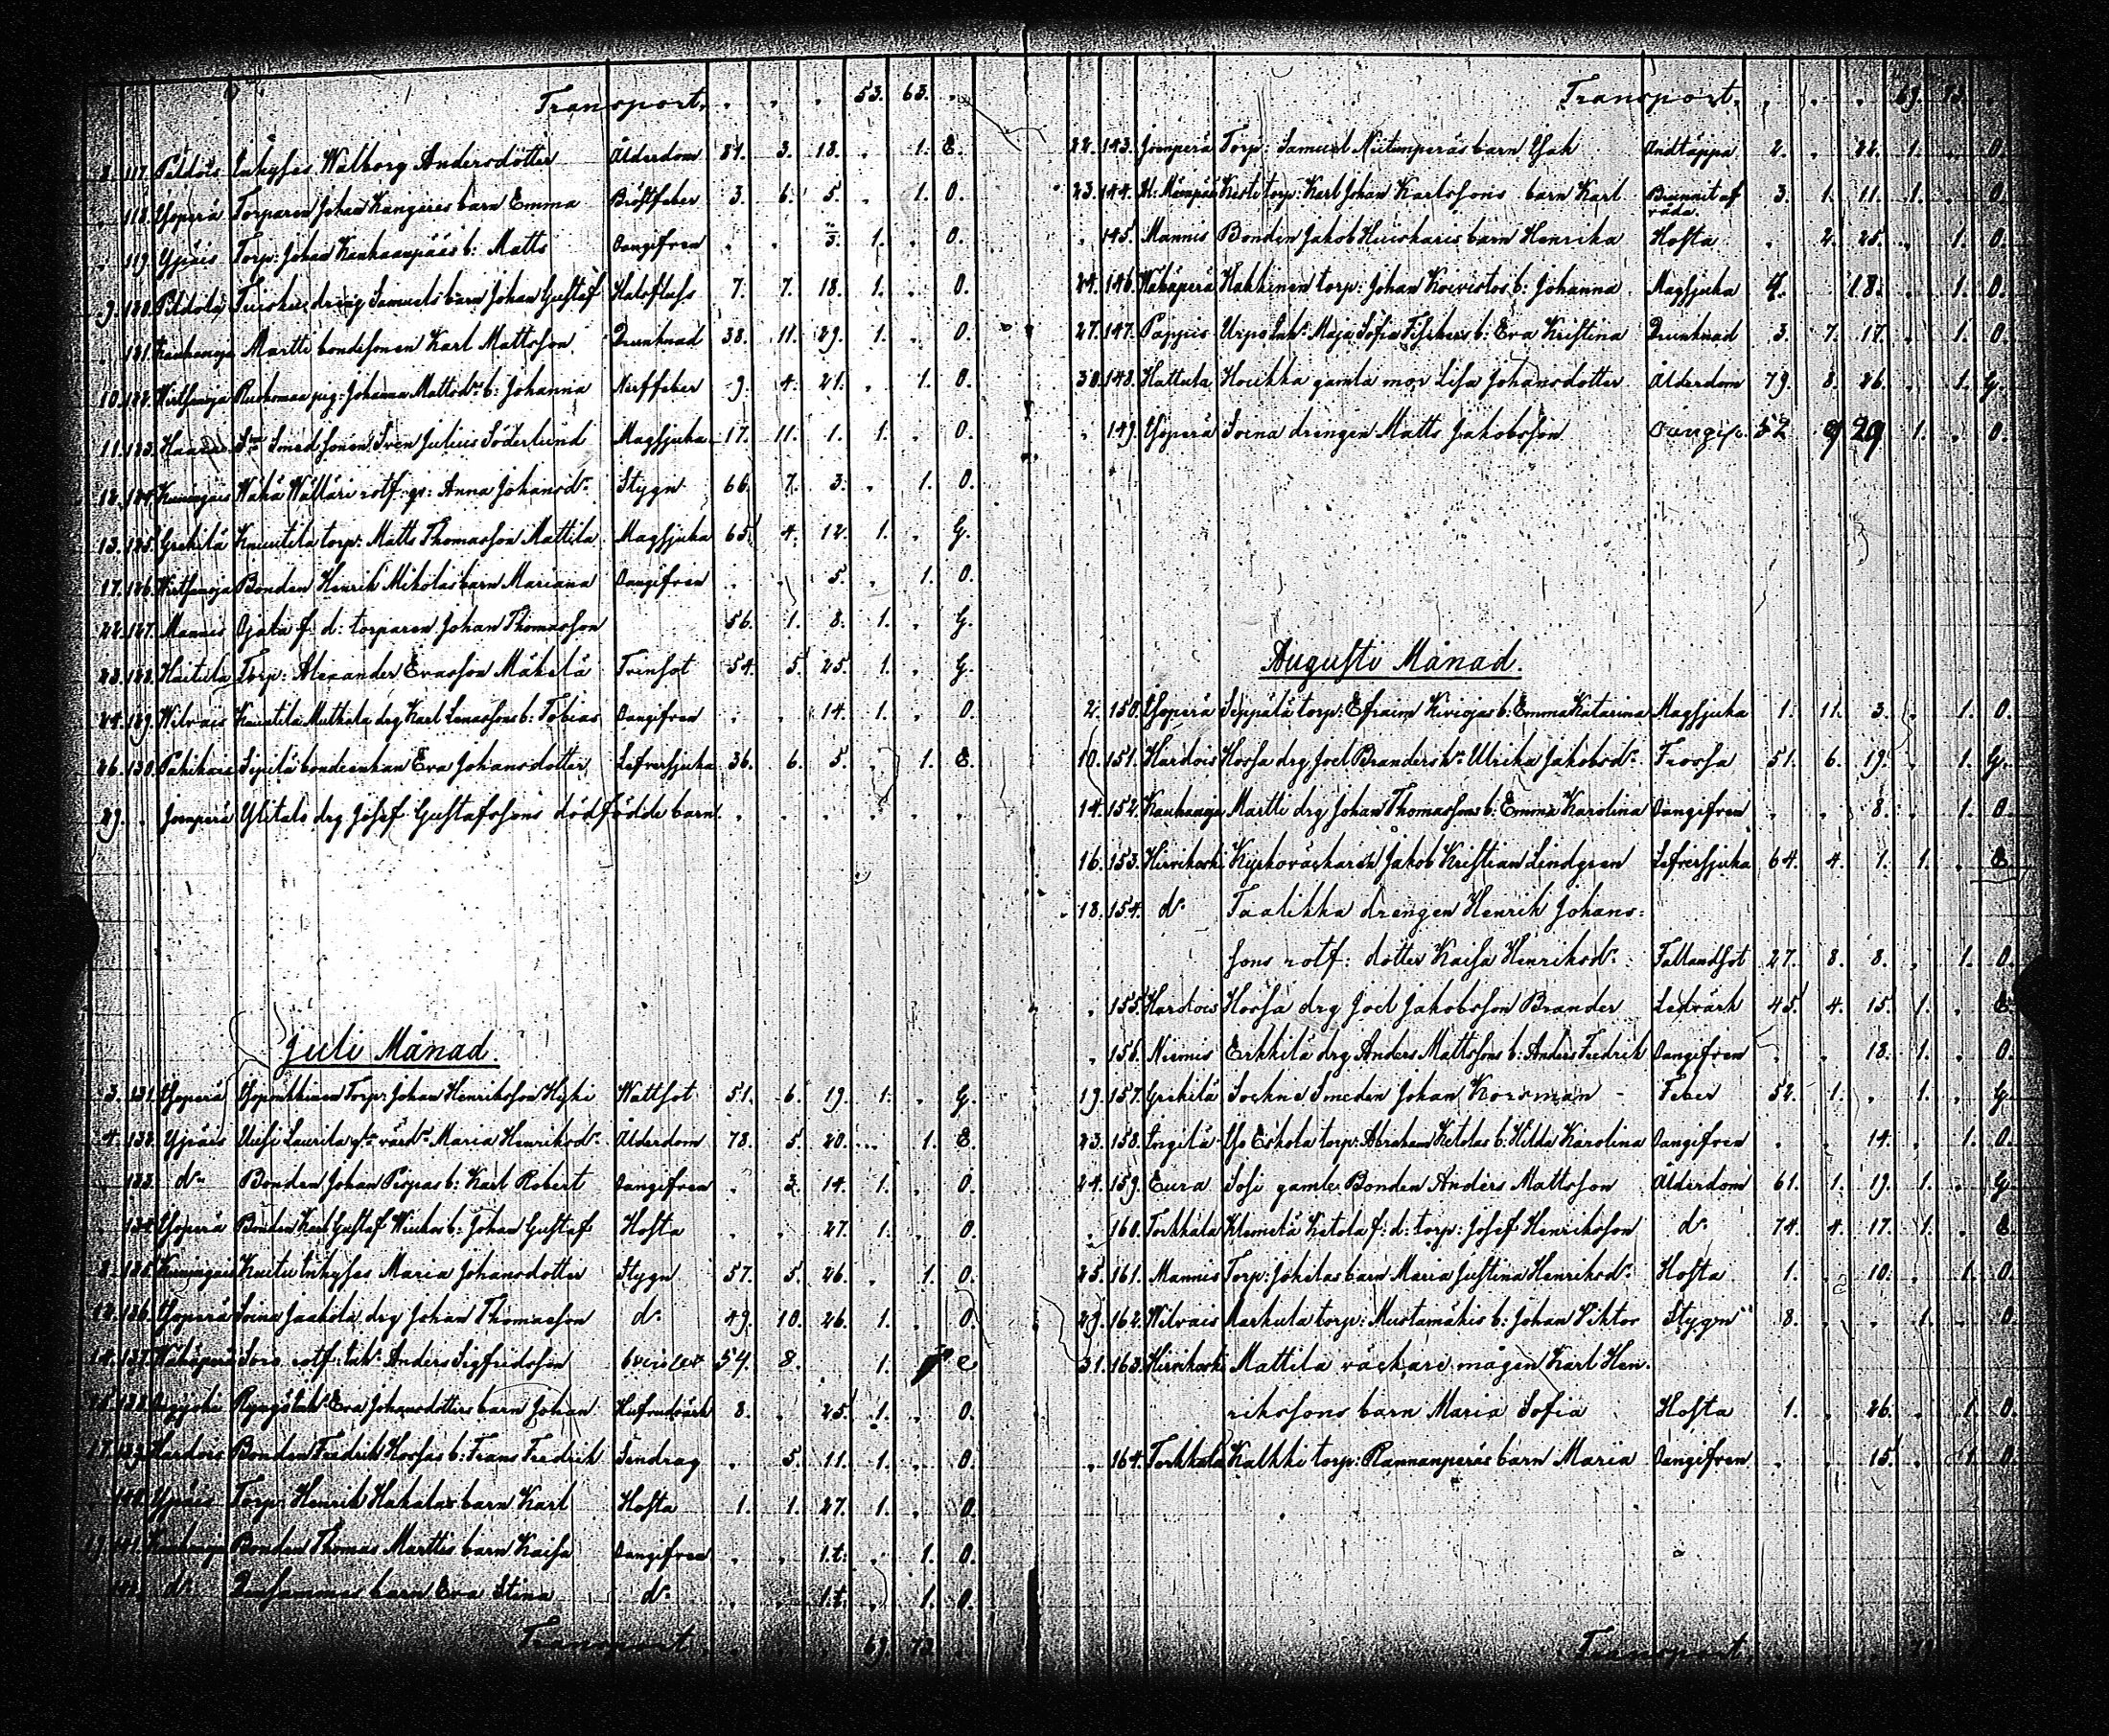 Transport. 53. 63.
8. 117. Pildois Inhyses Walborg Andersdotter Ålderdom 81. 3. 18. 1. E.
118. Ysoperä Torparen Johan Kangares barn Emma Bröstfeber 3. 6. 5. 1. O.
119. Ypäis Torp: Johan Kankaanpääs b: Matts Oangifven 3. 1. O.
9. 120. Pildola dräng Samuels barn Johan Gustaf Halsfluss 7. 7. 18. 1. O.
121. Kauhanoja Martti bondesonen Karl Mattsson Drunknad 38. 11. 29. 1. O.
10. 122. Wirtsanoja Ruskomaa pig: Johanna Mattsdr b: Johanna Nerffeber 9. 4. 21. 1. O.
11. 123. Smedsonen Sven Julius Söderlund Magsjuka 17. 11. 1. 1. O.
12. 124. Kuningais Wähä Wälläri rotf. gr: Anna Johansdr Stygn 66. 7. 3. 1. O.
13. 125. Grekilä Knuutila torp: Matts Thomasson Mattila Magsjuka 65. 4. 12. 1. G.
17. 126. Wirtsanoja Bonden Henrik Mikolas barn Mariana Oangifven 5. 1. O.
22. 127. Mannis Ojala f. d: torparen Johan Thomasson 56. 1. 8. 1. G.
23. 128. Torp: Alexander Evasson Mäkelä Trensot 54. 5. 25. 1. G.
24. 129. Wilvais Knuutila Muthala drg Karl Lenassons b: Tobias Oangifven 14. 1. O.
26. 130. Pahikais Sipilä bondeenkan Eva Johansdotter Lefversjuka 36. 6. 5. 1. E.
29. Joenperä Ylitalo drg Josef Gustafssons dödfödde barn.
Juli Månad.
3. 131. Ysoperä Torp: Johan Henriksson Heski Wattsot 51. 6. 19. 1. G.
4. 132. Ypäis Uusi Laurila värd Maria Henriksdr Ålderdom 78. 5. 20. 1. E.
133. do Bonden Johan Pispas b: Karl Robert Oangifven 2. 14. 1. O.
134. Ysoperä Bonden Karl Gustaf b: Johan Gustaf Hosta 27. 1. O.
8. 135. Kuningais Kuitu Inhyses Maria Johansdotter Stygn 57. 5. 26. 1. O.
12. 136. Ysoperä Soina Jaakola drg Johan Thomasson do 49. 10. 26. 1. O.
14. 137. Wähäperä rotf: inh: Anders Sigfridsson 54. 8. 1. e
15. 138. Eva Johansdotters barn Johan Hufvudvärk 8. 25. 1. O.
17. 139. Hardois Bonden Fredrik Horsas b: Frans Fredrik Sendrag 5. 11. 1. O.
140. Ypäis Torp: Henrik Hakalas barn Karl Hosta 1. 1. 27. 1. O.
19. 141. Kauhanoja Bonden Thomas Marttis barn Kaisa Oangifven 1.t. 1. O.
142. do Densammes barn Eva Stina do 1.t. 1. O.
Transport. 69. 73.
Transport. 69. 73.
22. 143. Joenperä Torp: Samuel Niitunperäs barn Isak Andtäppa 2. 22. 1. O.
23. 144. Kisti torp: Karl Johan Karlssons barn Karl Brunnit af våda 3. 1. 11. 1. O.
145. Mannis Bonden Jakob Huiskaris barn Henrika Hosta 2. 25. 1. O.
24. 146. Wähäperä Hakkinen torp: Johan Koivistos b: Johanna Magsjuka 4. 18. 1. O.
27. 147. Pappis Urpo Inh: Maja Sofia Fiskers b: Eva Kristina Drunknad 3. 7. 17. 1. O.
30. 148. Hattula Houkka gamla mor Lisa Johansdotter Ålderdom 79. 8. 26. 1. G.
149. Ysoperä Soina drengen Matts Jakobsson Oangif. 52 9 29 1. O.
Augusti Månad.
2. 150. Ysoperä Seppälä torp: Efraim Kiviojas b: Emma Katarina Magsjuka 1. 11. 3. 1. O.
10. 151. Hardois Horsa drg Joel Branders h: Ulrika Jakobsdr Frossa 51. 6. 19. 1. G.
14. 152. Kauhanoja Martti drg Johan Thomassons b: Emma Karolina Oangifven 8. 1. O.
16. 153. Hirvikoski Kyrkoväktaren Jakob Kristian Lindgren Lefversjuka 64. 4. 1. 1. E.
18. 154. do Taalikka drengen Henrik Johans:
sons rotf: dotter Kaisa Henriksdr Fallandsot 27. 8. 8. 1. O.
155. Hardois Horsa drg Joel Jakobsson Brander Ledvärk 45. 4. 15. 1. E.
156. Niemis Erkkilä drg Anders Mattssons b: Anders Fredrik Oangifven 18. 1. O.
19. 157. Grekilä Sockne Smeden Johan Korsman Feber 52. 1. 1. G.
23. 158. Ingilä Iso Eskola torp: Abraham Ketolas b: Hilda Karolina Oangifven 14. 1. O.
24. 159. Eura Sosi gamle Bonden Anders Mattsson Ålderdom 61. 1. 19. 1. G.
160. Torkkala Klemelä Ketola f: d: torp: Josef Henriksson do 74. 4. 17. 1. E.
25. 161. Mannis Torp: Jokelas barn Maria Justina Henriksdr Hosta 1. 10. 1. O.
29. 162. Wilvais Markula torp: Mustamäkis b: Johan Viktor Stygn 8. 1. O.
31. 163. Hirvikoski Mattila väskare mågen Karl Hen.
rikssons barn Maria Sofia Hosta 1. 26. 1. O.
164. Torkkala Kalkki torp: Rannanperäs barn Maria Oangifven 15. 1. O.
Transport.